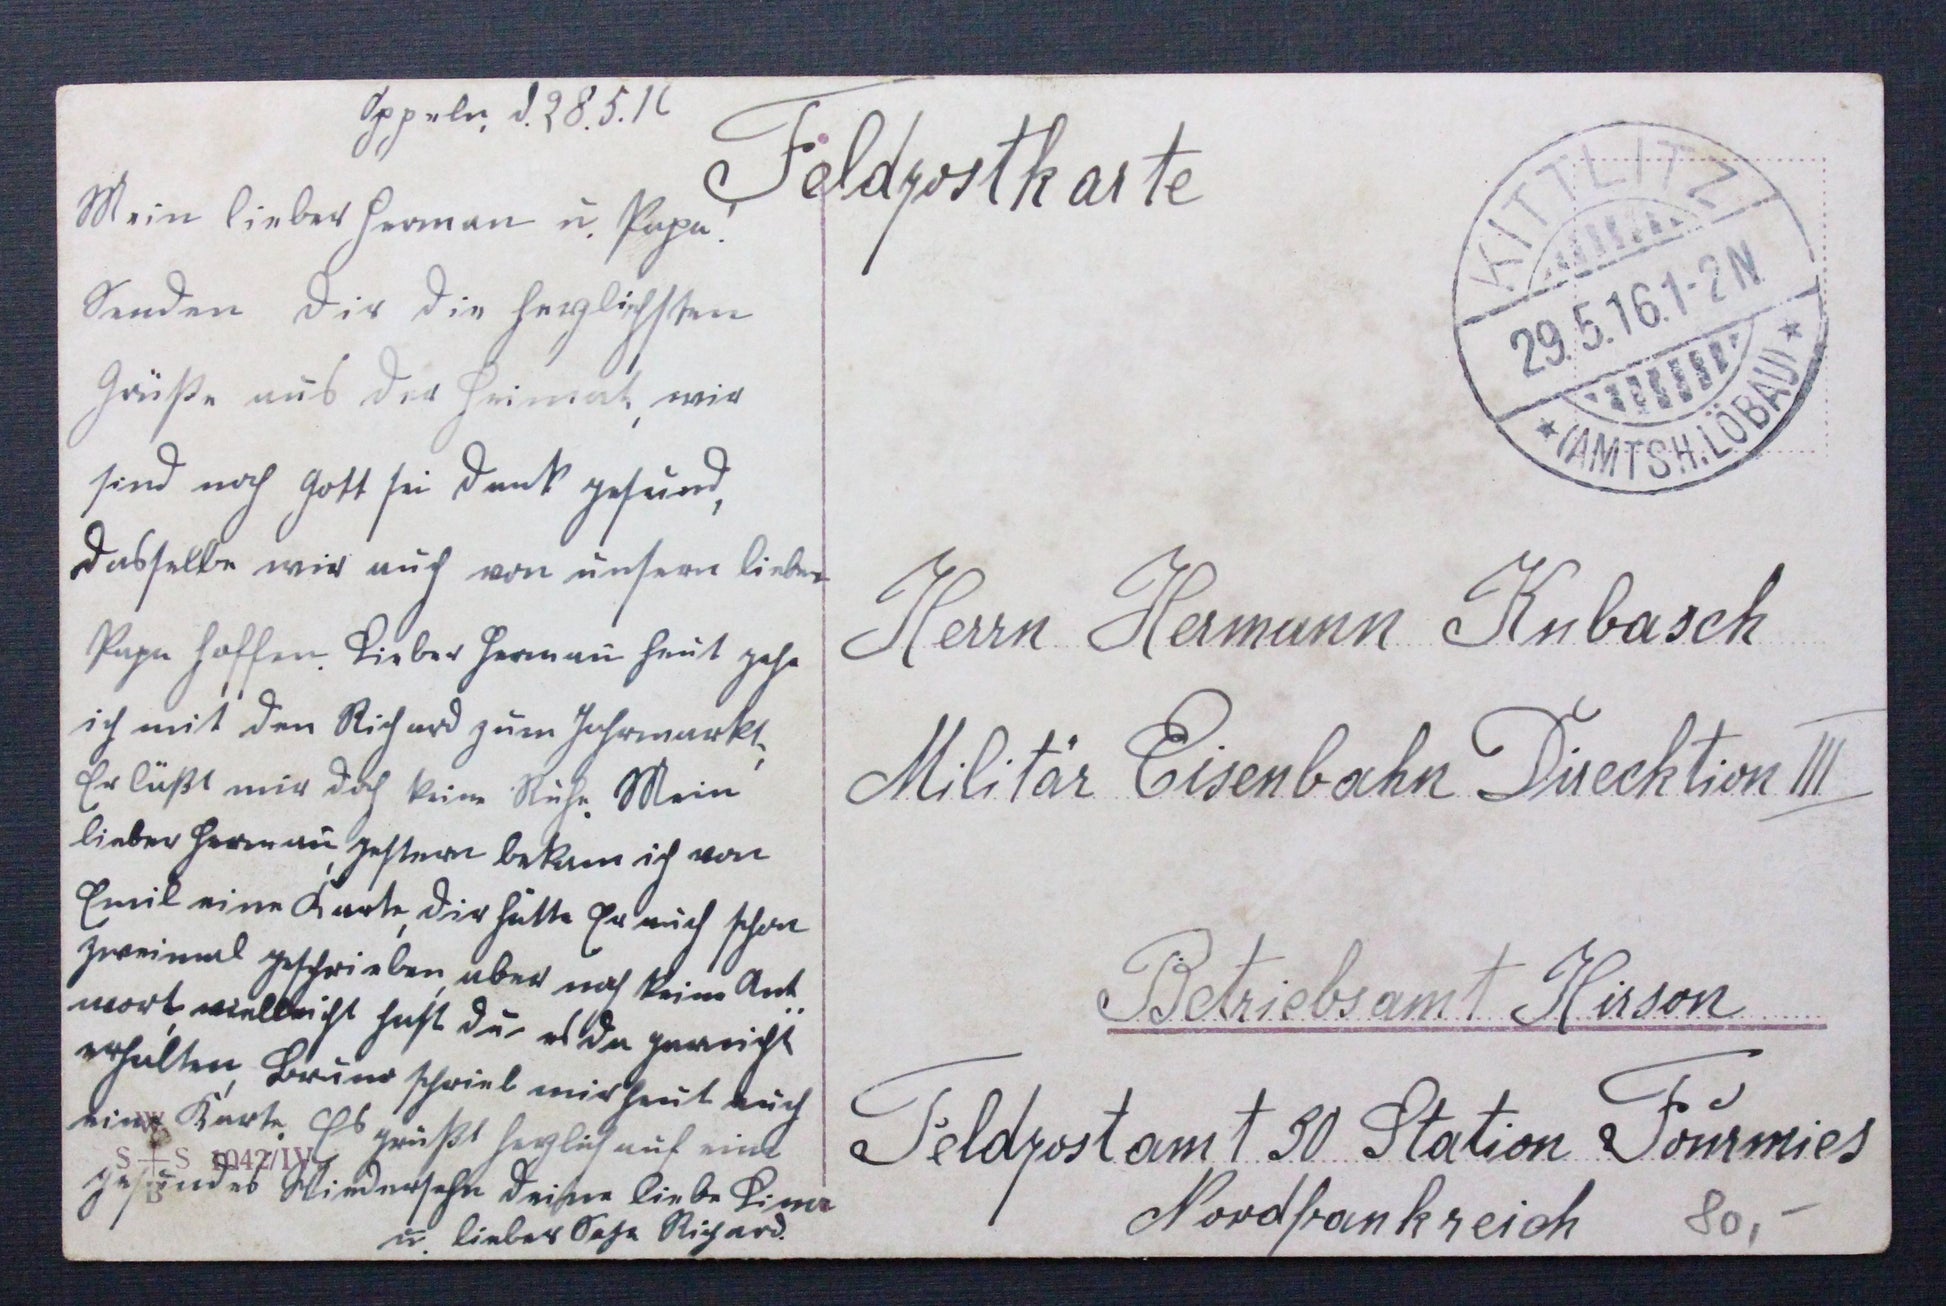 Oppeln, d. 28.5.16
Mein lieber Herman u. Papa!
Senden Dir die herzlichsten
Grüße aus der Heimat, wir
sind noch Gott sei Dank gesund,
dasselbe wir auch von unsern lieben
Papa hoffen. Lieber Herman heut gehe
ich mit den Richard zum Jahrmarkt,
Er läßt mir doch keine Ruhe. Mein
lieber Herman, gestern bekam ich von
Emil eine Karte, dir hätte Er auch schon
zweimal geschrieben, aber noch keine Ant
wort, vielleicht hast du es da garnicht
erhalten, Bruno schrieb mir heut auch
eine Karte. Es grüßt herzlich auf ein
gesundes Wiedersehn Deine liebe Lina
u. lieber Sohn Richard.
W
S S 1042/IV
B
Feldpostkarte
KITTLITZ
29.5.16.1-2N
* (AMTSH. LÖBAU) *
Herrn Hermann Kubasch
Militär Eisenbahn Direcktion III
Betriebsamt Hirson
Feldpostamt 50 Station Fourmies
Nordfrankreich
80,-